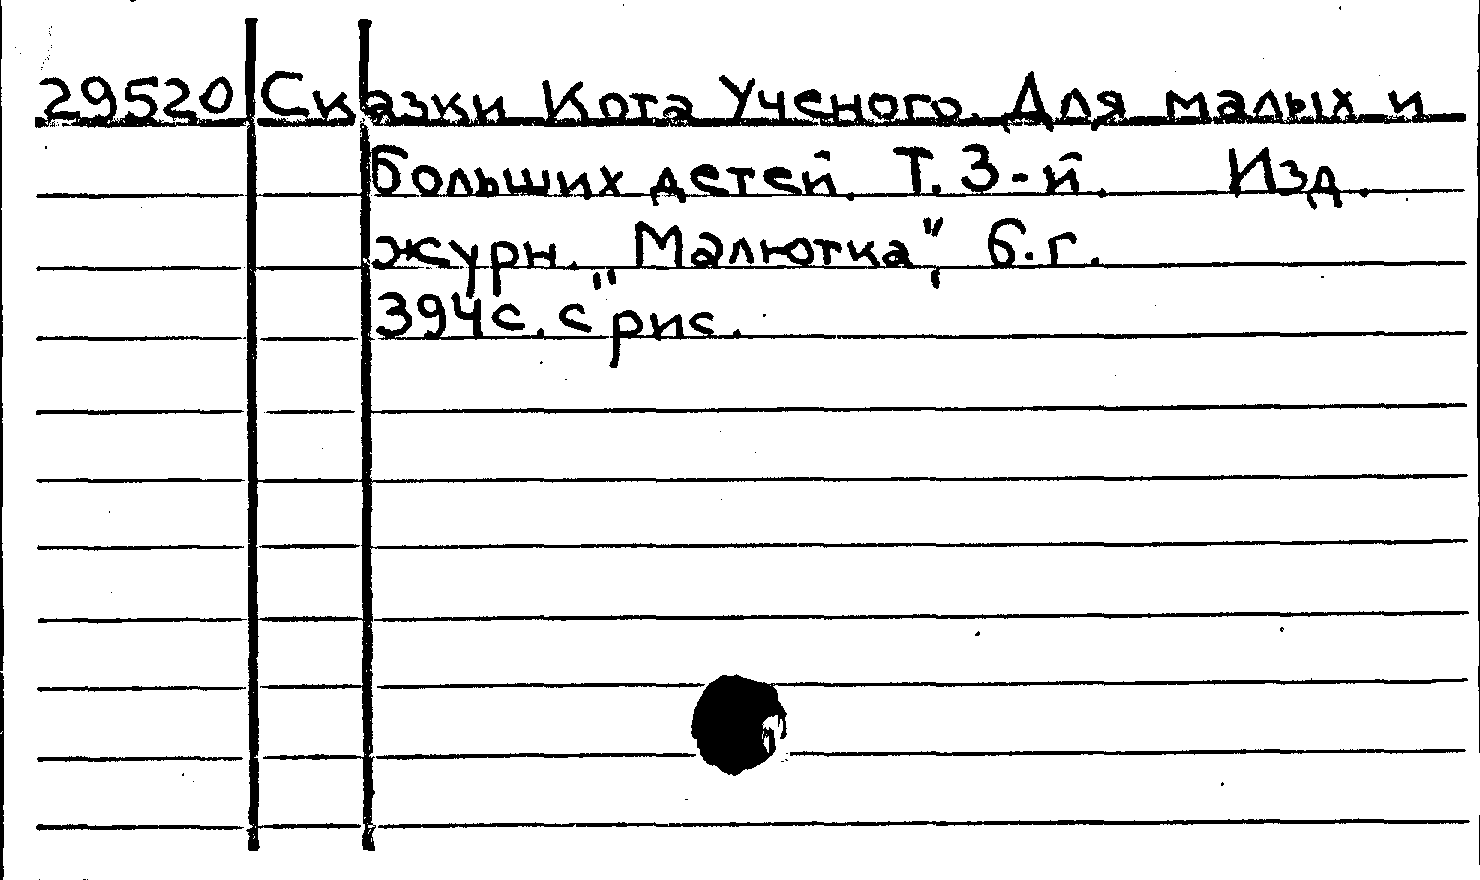 29520 Сказки Кота Ученого. Для малых и
больших детей. Т. 3-й. Изд.
журн. „Малютка“, б.г.
394с. с рис.